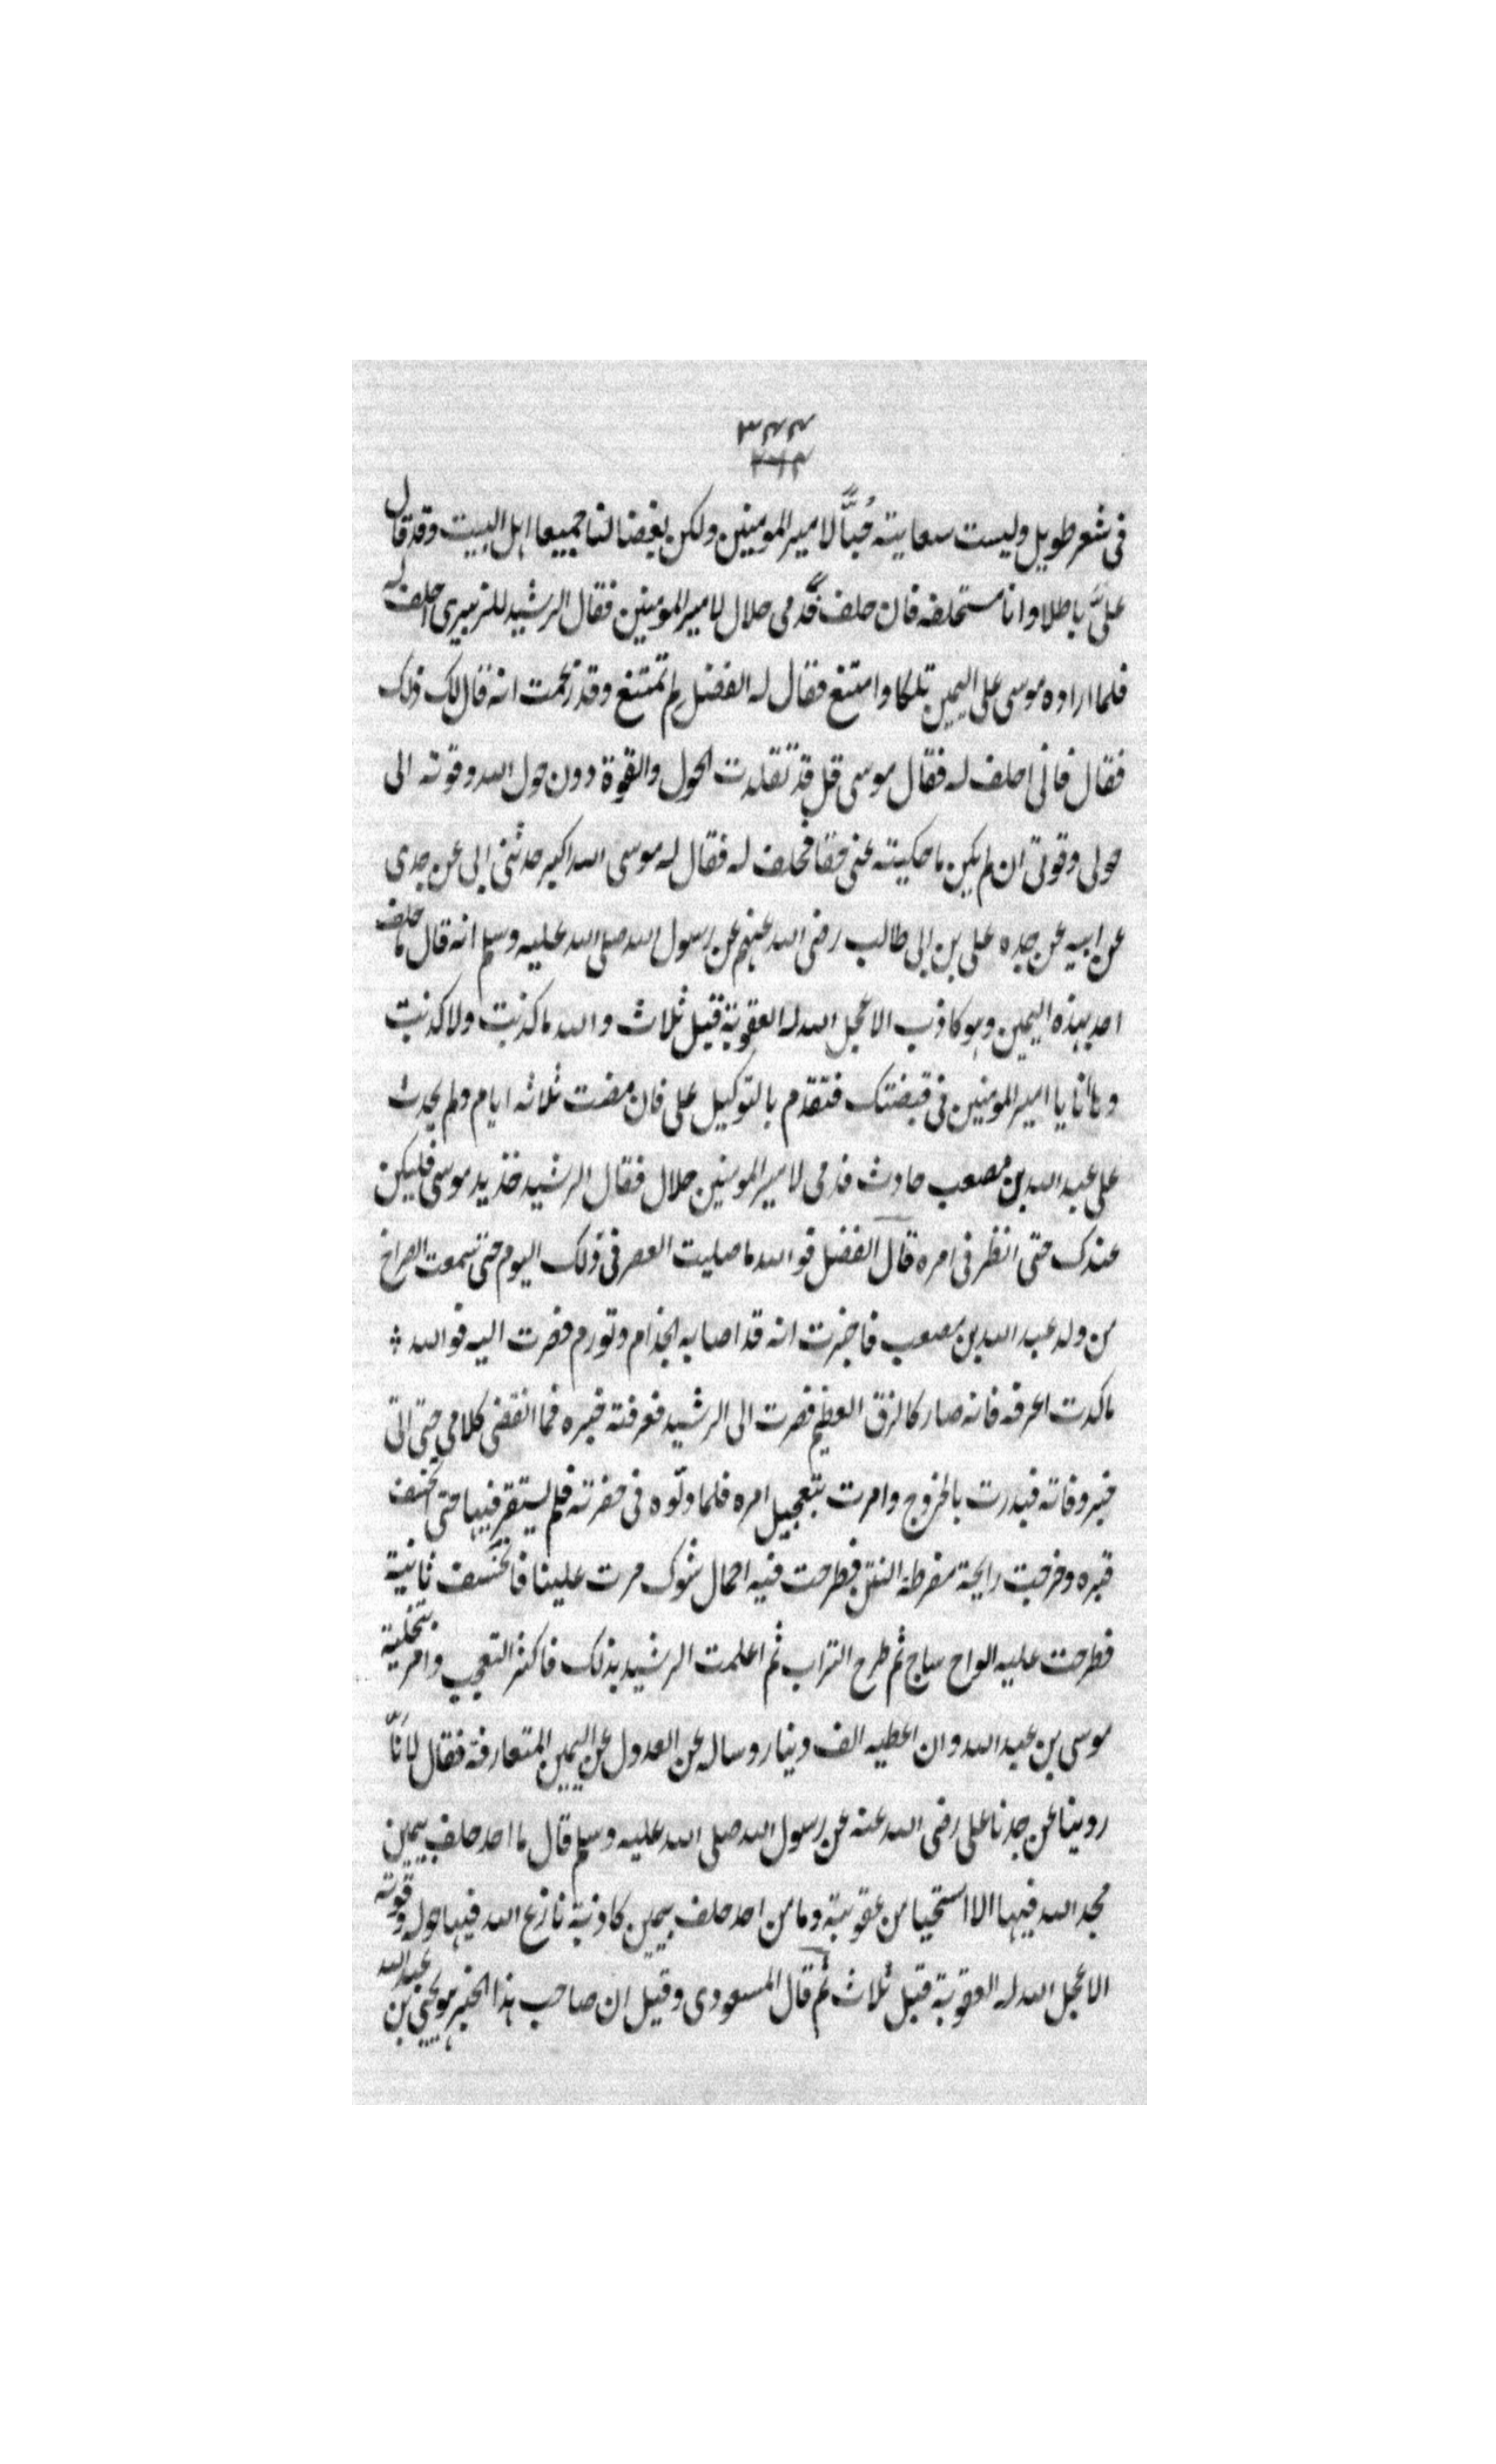 ٣٤٤
٣٦٢
فى شعر طويل وليست سعايته حُبًّا لامير المومنين ولكن بغضا لنا جميعا اهل البيت وقد قال
علىَّ باطلا وانا مستحلفه فان حلف فدمى حلال لامير المومنين فقال الرشيد للزبيرى احلف له
فلما اراده موسى على اليمين تلكا وامتنع فقال له الفضل لِم تمتنع وقد زعمت انه قال لك ذلك
فقال فانى احلف له فقال موسى قل قد تقلدت الحول والقوة دون حول الله وقوته الى
حولى وقوتى ان لم يكن ما حكيته عنى حقا فحلف له فقال له موسى الله اكبر حدثنى ابى عن جدى
عن ابيه عن جده على بن ابى طالب رضى الله عنهم عن رسول الله صلى الله عليه وسلم انه قال ما حلف
احد بهذه اليمين وهو كاذب الا عجل الله له العقوبة قبل ثلاث والله ما كذبت ولا كذبت
وها انا يا امير المومنين فى قبضتك فتقدم بالتوكيل على فان مضت ثلاثه ايام ولم يحدث
على عبد الله بن مصعب حادث فدمى لامير المومنين حلال فقال الرشيد خذ بيد موسى فليكن
عندك حتى انظر فى امره قال الفضل فو الله ما صليت العصر فى ذلك اليوم حتى سمعت الصراخ
من ولد عبد الله بن مصعب فاخبرت انه قد اصابه الجذام وتورم فصرت اليه فو الله
ما كدت اعرفه فانه صار كالزق العظيم فصرت الى الرشيد فعرفته خبره فما انقضى كلامى حتى اتى
خبر وفاته فبدرت بالخروج وامرت بتعجيل امره فلما دلّوه فى حفرته فلم يستقر فيها حتى انخسف
قبره وخرجت رايحة مفرطة النتن فطرحت فيه احمال شوك مرت علينا فانخسف ثانية
فطرحت عليه الواح ساج ثم طرح التراب ثم اعلمت الرشيد بذلك فاكثر التعجب وامر بتخلية
موسى بن عبد الله وان اعطيه الف دينار وساله عن العدول عن اليمين المتعارفة فقال لانّا
روينا عن جدنا على رضى الله عنه عن رسول الله صلى الله عليه وسلم قال ما احد حلف بيمين
مجد الله فيها الا استحيا من عقوبته وما من احد حلف بيمين كاذبة نازع الله فيها حوله وقوته
الا عجل الله له العقوبة قبل ثلاث ثم قال المسعودى وقيل ان صاحب هذا الخبر هو يحيى بن عبد الله